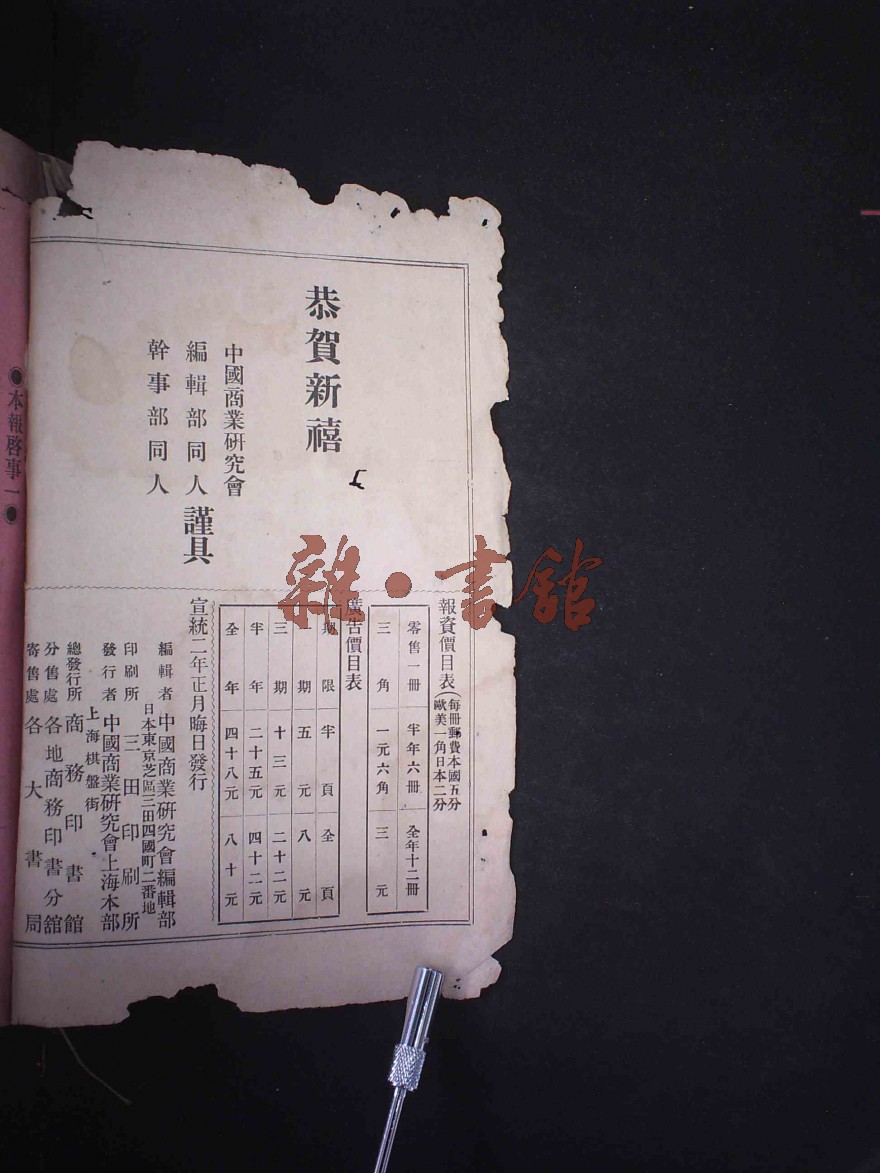 恭賀新禧
中國商業研究會
編輯部同人
幹事部同人
謹具
報資價目表(每冊郵費本國五分
歐美一角日本二分
零售一冊 半年六冊 全年十二冊
三角 一元六角 三元
廣告價目表
期限 半頁 全頁
一期 五元 八元
三期 十三元 二十二元
半年 二十五元 四十二元
全年 四十八元 八十元
宣統二年正月晦日發行
編輯者 中國商業研究會編輯部
日本東京芝區三田四國町二番地
印刷所 三田印刷所
發行者 中國商業研究會上海本部
上海棋盤街
總發行所 商務印書館
分售處 各地商務印書分館
寄售處 各大書局
●本報啓事一●
雜·書館